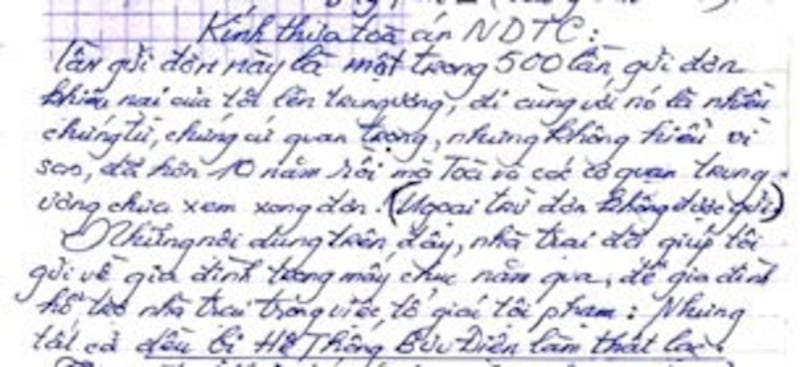 Kính thưa toà án NDTC:
lần gửi đơn này là một trong 500 lần gửi đơn
khiếu nại của tôi lên trung ương, đi cùng với nó là nhiều
chứng từ, chứng cứ quan trọng, nhưng không hiểu vì
sao, đã hơn 10 năm rồi mà Toà và các cơ quan trung
ương chưa xem xong đơn. (Ngoại trừ đơn không được gửi)
Những nội dung trên đây, nhà trại đã giúp tôi
gửi về gia đình trong mấy chục năm qua, để gia đình
hỗ trợ nhà trại trong việc tố giác tội phạm: Nhưng
tất cả đều bị Hệ Thống Bưu Điện làm thất lạc.